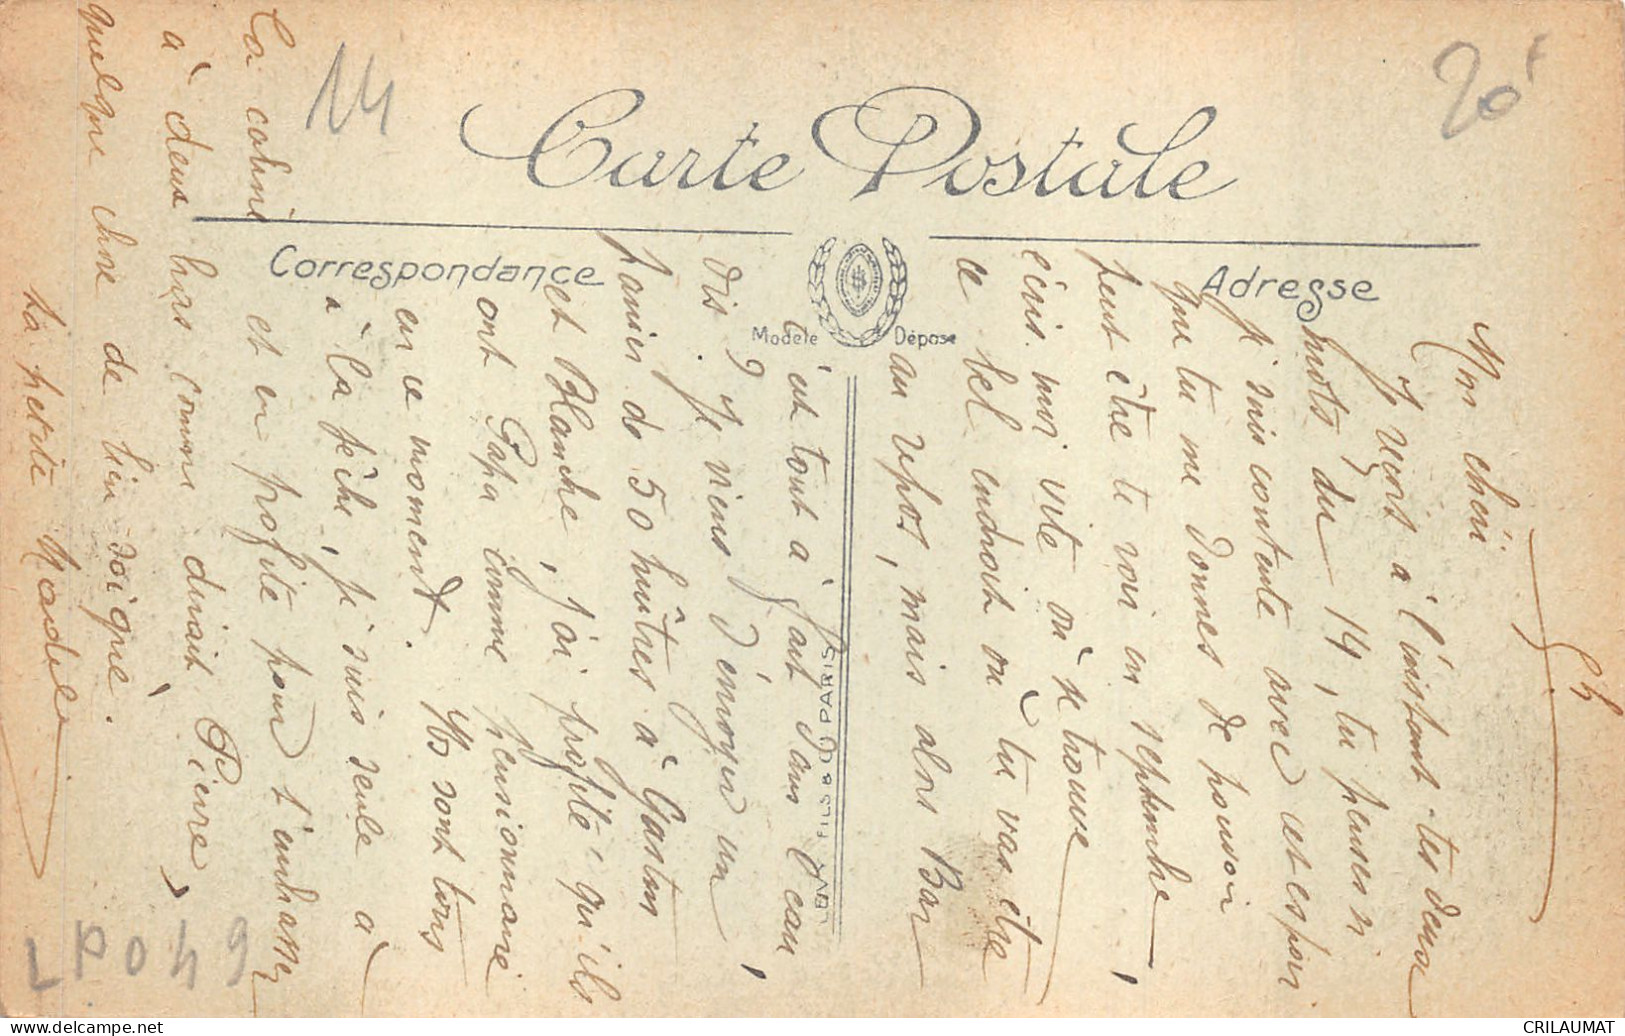 14
20F
Carte Postale
Correspondance
Adresse
Modèle Déposé
LEVY FILS & Cie PARIS
LP049
Mon chéri
Je reçois à l'instant tes deux
mots du 14, tu penses si
je suis contente avec cet espoir
que tu me donnes de pouvoir
peut être te voir en septembre,
écris moi vite où se trouve
ce bel endroit où tu vas être
au repos, mais alors Bar
c'est tout à fait dans l'eau
dis ? Je viens d'envoyer un
panier de 50 huîtres à Gaston
et Blanche, j'ai profité qu'ils
ont Papa comme pensionnaire
en ce moment. Ils sont tous
à la pêche, je suis seule à
la cabine et en profite pour t'embrasser
à deux bras comme dirait Pierre,
quelque chose de bien soigné.
ta petite Nadele